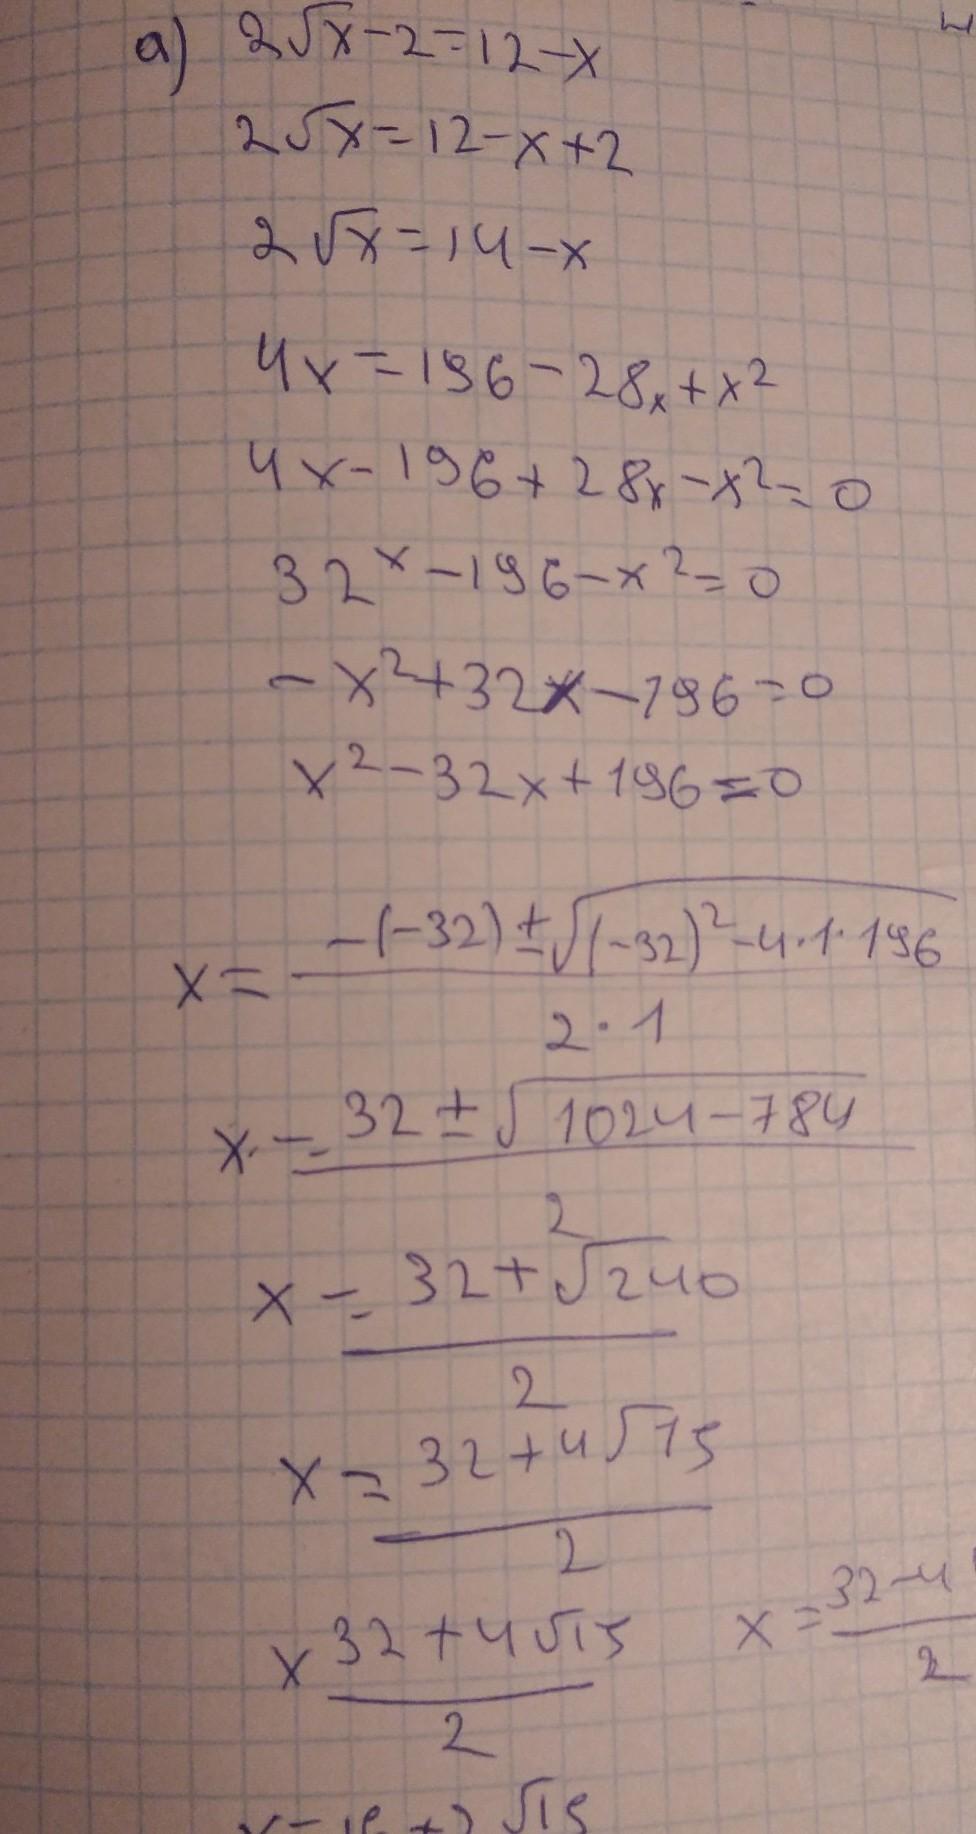 а) 2√x-2=12-x
2√x=12-x+2
2√x=14-x
4x=196-28x+x²
4x-196+28x-x²=0
32x-196-x²=0
-x²+32x-196=0
x²-32x+196=0
x= (-(-32)±√((-32)²-4·1·196))/(2·1)
x= (32±√(1024-784))/2
x= (32+√240)/2
x= (32+4√15)/2
x (32+4√15)/2 x= (32-4)/2
x=16+2√15